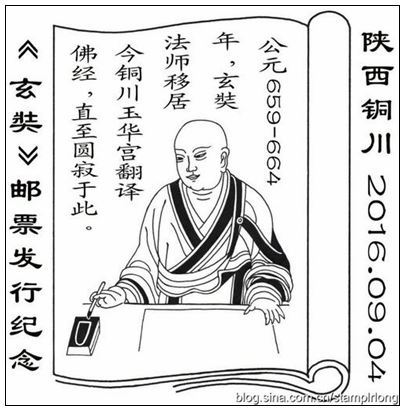 陕西铜川 2016.09.04
公元659-664
年，玄奘
法师移居
今铜川玉华宫翻译
佛经，直至圆寂于此。
《玄奘》邮票发行纪念
blog.sina.com.cn/stamplrlong